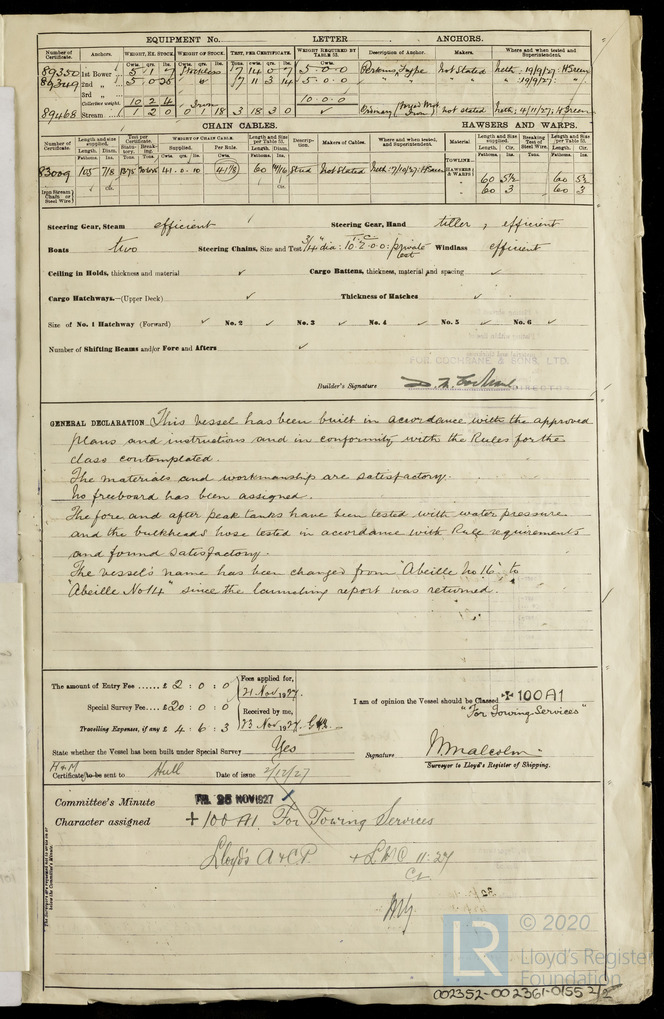 EQUIPMENT No. LETTER ANCHORS.
Number of Certificate. Anchors. WEIGHT, EX. STOCK. WEIGHT OF STOCK. TEST, PER CERTIFICATE. WEIGHT REQUIRED BY TABLE 53. Description of Anchor. Makers. Where and when tested and Superintendent.
89350 1st Bower 5 1 7 Stockless 7 14 0 7 5.0.0 Perkins Type Not Stated Neth: 19/9/27: H Green
89349 2nd " 5 0 25 " 7 11 3 14 5.0.0 " " " " " : 19/9/27: "
3rd "
Collective weight. 10 2 4 Iron 10.0.0
89468 Stream 1 2 0 0 1 18 3 18 3 0 ✓ Ordinary not stated Neth: 4/11/27: H Green
CHAIN CABLES. HAWSERS AND WARPS.
Number of Certificate. Length and size supplied. Test per Certificate. WEIGHT OF CHAIN CABLE. Length and Size per Table 53. Description. Makers of Cables. Where and when tested, and Superintendent. Material Length and Size supplied. Breaking Test of Steel Wire. Length and Size per Table 53.
TOWLINE
83009 105 7/8 41.0.10 41/8 60 14/16 Stud Not Stated Neth: 7/10/27: H Green HAWSERS & WARPS 60 5½ 60 5½
60 3 60 3
Iron Stream Chain or Steel Wire
Steering Gear, Steam efficient Steering Gear, Hand tiller, efficient
Boats two Steering Chains, Size and Test 3/4 dia: 10.2.0.0: private test Windlass efficient
Ceiling in Holds, thickness and material ✓ Cargo Battens, thickness, material and spacing ✓
Cargo Hatchways.—(Upper Deck) ✓ Thickness of Hatches ✓
Size of No. 1 Hatchway (Forward) ✓ No. 2 ✓ No. 3 ✓ No. 4 ✓ No. 5 ✓ No. 6 ✓
Number of Shifting Beams and/or Fore and Afters ✓
FOR COCHRANE & SONS, LTD.
Builder's Signature D. N. Cochrane DIRECTOR
GENERAL DECLARATION This vessel has been built in acordance with the approved
plans and instructions and in conformity with the Rules for the
class contemplated.
The materials and workmanship are satisfactory.
No freeboard has been assigned.
The fore and after peak tanks have been tested with water pressure
and the bulkheads hose tested in acordance with Rule requirements
and found satisfactory.
The vessel's name has been changed from "Abeille No 16" to
"Abeille No 14" since the launching report was returned.
The amount of Entry Fee ...... £ 2 : 0 : 0 Fees applied for, 21 Nov 1927.
Special Survey Fee .... £20 : 0 : 0 Received by me,
Travelling Expenses, if any £ 4 : 6 : 3 23 Nov 1927.
I am of opinion the Vessel should be Classed ✠ 100A1
"For Towing Services"
State whether the Vessel has been built under Special Survey Yes
Signature W Malcolm
Surveyor to Lloyd's Register of Shipping.
H & M
Certificate to be sent to Hull Date of issue 2/12/27
Committee's Minute FRI. 25 NOV 1927
Character assigned + 100A1 For Towing Services
Lloyd's A & C.P. + LMC 11:27
© 2020
LR Lloyd's Register Foundation
002352-002361-0155 2/2